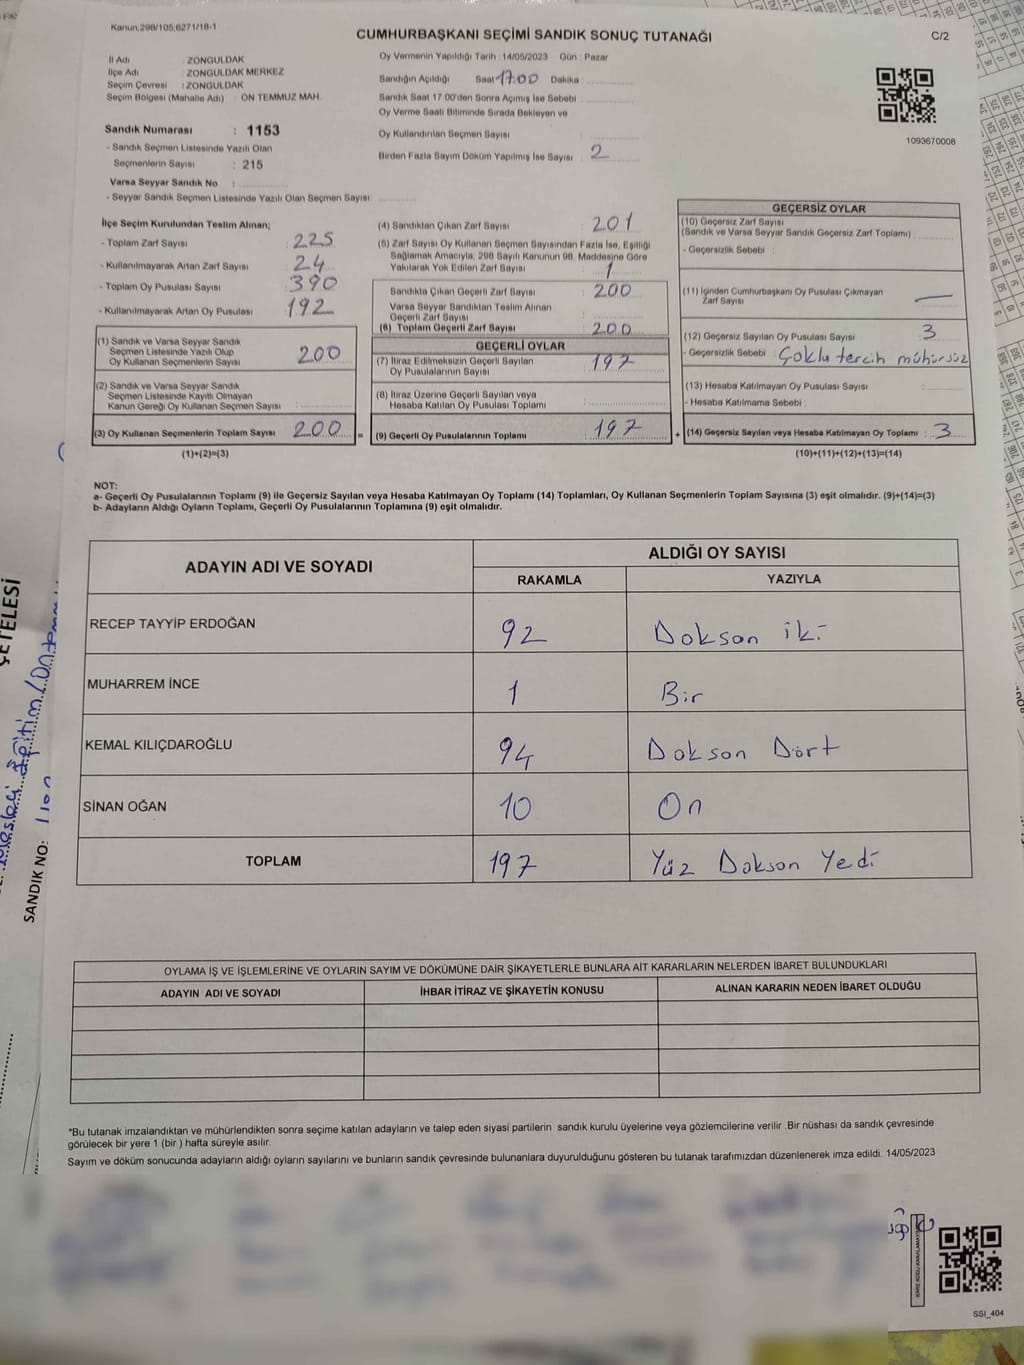 Kanun.298/105,6271/18-1
CUMHURBAŞKANI SEÇİMİ SANDIK SONUÇ TUTANAĞI
C/2
İl Adı : ZONGULDAK
İlçe Adı : ZONGULDAK MERKEZ
Seçim Çevresi : ZONGULDAK
Seçim Bölgesi (Mahalle Adı) : ON TEMMUZ MAH.
Oy Vermenin Yapıldığı Tarih :14/05/2023 Gün : Pazar
Sandığın Açıldığı Saat 17:00 Dakika :
Sandık Saat 17:00'den Sonra Açımış İse Sebebi :
Oy Verme Saati Bitiminde Sırada Bekleyen ve
Oy Kullandırılan Seçmen Sayısı :
Birden Fazla Sayım Döküm Yapılmış İse Sayısı : 2
1093670008
Sandık Numarası : 1153
- Sandık Seçmen Listesinde Yazılı Olan
Seçmenlerin Sayısı : 215
Varsa Seyyar Sandık No :
- Seyyar Sandık Seçmen Listesinde Yazılı Olan Seçmen Sayısı:
İlçe Seçim Kurulundan Teslim Alınan;
- Toplam Zarf Sayısı : 225
- Kullanılmayarak Artan Zarf Sayısı : 24
- Toplam Oy Pusulası Sayısı : 390
- Kullanılmayarak Artan Oy Pusulası : 192
(1) Sandık ve Varsa Seyyar Sandık
Seçmen Listesinde Yazılı Olup
Oy Kullanan Seçmenlerin Sayısı : 200
(2) Sandık ve Varsa Seyyar Sandık
Seçmen Listesinde Kayıtlı Olmayan
Kanun Gereği Oy Kullanan Seçmen Sayısı :
(3) Oy Kullanan Seçmenlerin Toplam Sayısı : 200 =
(1)+(2)=(3)
(4) Sandıktan Çıkan Zarf Sayısı : 201
(5) Zarf Sayısı Oy Kullanan Seçmen Sayısından Fazla İse, Eşitliği
Sağlamak Amacıyla, 298 Sayılı Kanunun 98. Maddesine Göre
Yakılarak Yok Edilen Zarf Sayısı : 1
Sandıkta Çıkan Geçerli Zarf Sayısı : 200
Varsa Seyyar Sandıktan Teslim Alınan
Geçerli Zarf Sayısı :
(6) Toplam Geçerli Zarf Sayısı : 200
GEÇERLİ OYLAR
(7) İtiraz Edilmeksizin Geçerli Sayılan
Oy Pusulalarının Sayısı : 197
(8) İtiraz Üzerine Geçerli Sayılan veya
Hesaba Katılan Oy Pusulası Toplamı :
(9) Geçerli Oy Pusulalarının Toplamı : 197 +
GEÇERSİZ OYLAR
(10) Geçersiz Zarf Sayısı
(Sandık ve Varsa Seyyar Sandık Geçersiz Zarf Toplamı) :
- Geçersizlik Sebebi :
(11) İçinden Cumhurbaşkanı Oy Pusulası Çıkmayan
Zarf Sayısı : —
(12) Geçersiz Sayılan Oy Pusulası Sayısı : 3
- Geçersizlik Sebebi : Çoklu tercih mühürsüz
(13) Hesaba Katılmayan Oy Pusulası Sayısı :
- Hesaba Katılmama Sebebi :
(14) Geçersiz Sayılan veya Hesaba Katılmayan Oy Toplamı : 3
(10)+(11)+(12)+(13)=(14)
NOT:
a- Geçerli Oy Pusulalarının Toplamı (9) ile Geçersiz Sayılan veya Hesaba Katılmayan Oy Toplamı (14) Toplamları, Oy Kullanan Seçmenlerin Toplam Sayısına (3) eşit olmalıdır. (9)+(14)=(3)
b- Adayların Aldığı Oyların Toplamı, Geçerli Oy Pusulalarının Toplamına (9) eşit olmalıdır.
ADAYIN ADI VE SOYADI
ALDIĞI OY SAYISI
RAKAMLA YAZIYLA
RECEP TAYYİP ERDOĞAN 92 Doksan iki
MUHARREM İNCE 1 Bir
KEMAL KILIÇDAROĞLU 94 Doksan Dört
SİNAN OĞAN 10 On
TOPLAM 197 Yüz Doksan Yedi
OYLAMA İŞ VE İŞLEMLERİNE VE OYLARIN SAYIM VE DÖKÜMÜNE DAİR ŞİKAYETLERLE BUNLARA AİT KARARLARIN NELERDEN İBARET BULUNDUKLARI
ADAYIN ADI VE SOYADI İHBAR İTİRAZ VE ŞİKAYETİN KONUSU ALINAN KARARIN NEDEN İBARET OLDUĞU
*Bu tutanak imzalandıktan ve mühürlendikten sonra seçime katılan adayların ve talep eden siyasi partilerin sandık kurulu üyelerine veya gözlemcilerine verilir .Bir nüshası da sandık çevresinde
görülecek bir yere 1 (bir ) hafta süreyle asılır.
Sayım ve döküm sonucunda adayların aldığı oyların sayılarını ve bunların sandık çevresinde bulunanlara duyurulduğunu gösteren bu tutanak tarafımızdan düzenlenerek imza edildi. 14/05/2023
SSI_404
ÇETELESİ
SANDIK NO: